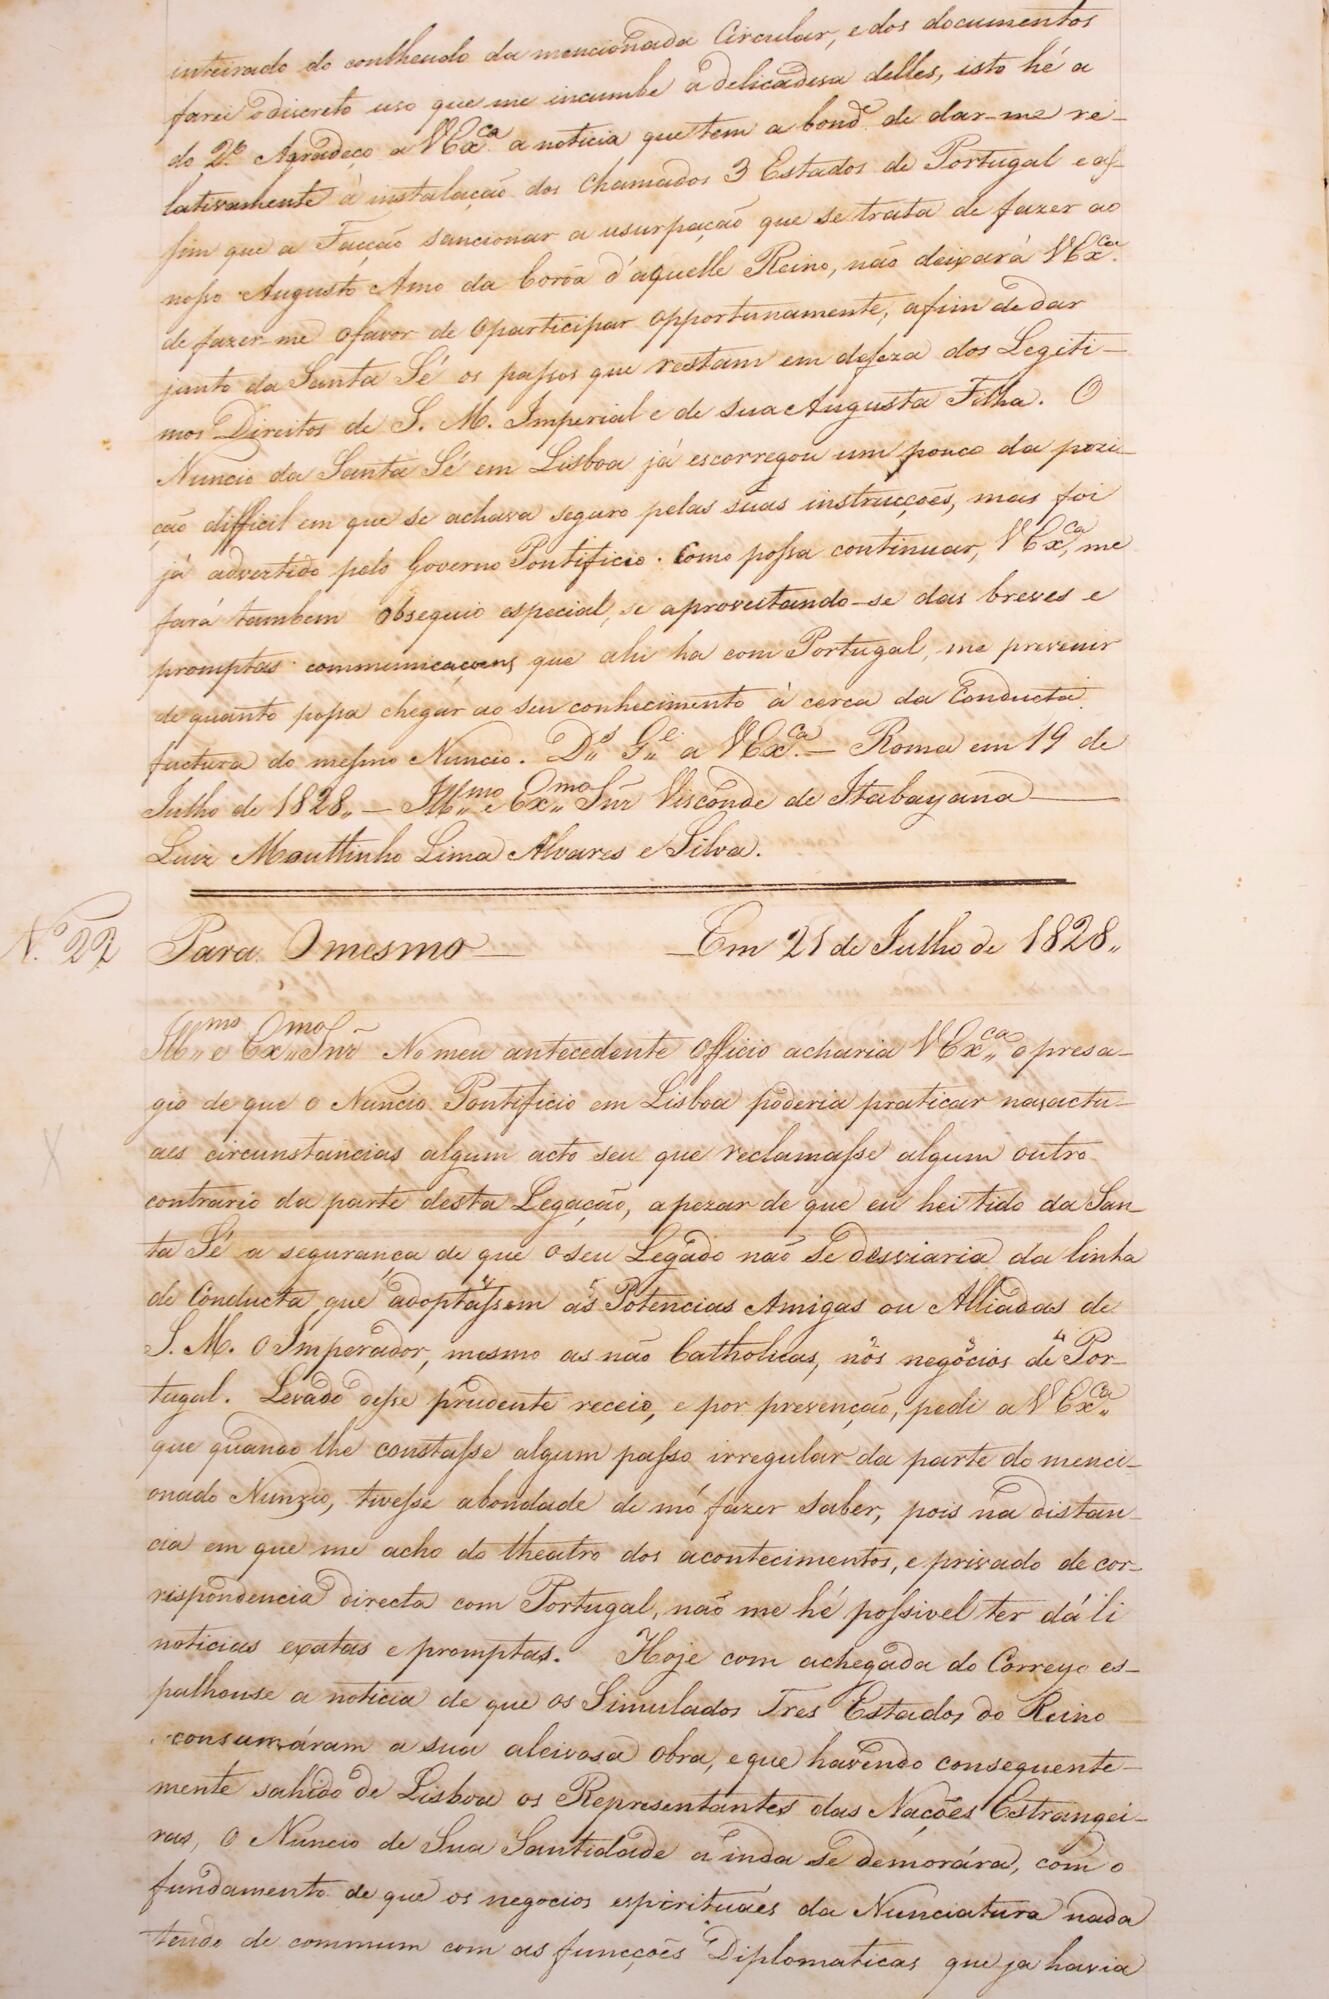 inteirado do conthendo da mencionada Circular, e dos documentos
farei o discreto uso que me incumbe a delicadesa delles, isto hé a
do 2º. Agradeço a VEx.ca a noticia que tem a bond.e de dar-me re-
lativamente à instalação dos chamados 3 Estados de Portugal e as-
sim que a Facção sancionar a usurpação que se trata de fazer ao
nosso Augusto Amo da Coróa d'aquelle Reino, não deixará VEx.ca
de fazer-me o favor de o participar opportunamente, a fim de dar
junto da Santa Sé os passos que restam em defeza dos Legiti-
mos Direitos de S. M. Imperial e de sua Augusta Filha. O
Nuncio da Santa Sé em Lisboa já escorregou um pouco da pozi-
ção difficil em que se achava seguro pelas suas instrucções, mas foi
já advertido pelo Governo Pontificio. Como possa continuar, VEx.ca, me
fará tambem obsequio especial, se aproveitando-se das breves e
promptas communicaçoens que ahi ha com Portugal, me prevenir
de quanto possa chegar ao seu conhecimento à cerca da Conducta
fuctura do mesmo Nuncio. D.s G.e a VEx.ca — Roma em 19 de
Julho de 1828. — Ill.mo e Ex.mo Snr Visconde de Itabayana —
Luiz Mouttinho Lima Alvares e Silva.
N.º 22 Para O mesmo — Em 21 de Julho de 1828.
Ill.mo e Ex.mo Snr No meu antecedente Officio acharia VEx.ca o presa-
gio de que o Nuncio Pontificio em Lisboa poderia praticar nas actu-
aes circunstancias algum acto seu que reclamasse algum outro
contrario da parte desta Legação, a pezar de que eu hei tido da San-
ta Sé a segurança de que o seu Legado não se desviaria da linha
de Conducta que adoptassem as Potencias Amigas ou Alliadas de
S. M. O Imperador, mesmo as não Catholicas, nos negocios de Por-
tugal. Levado desse prudente receio, e por prevenção, pedi a VEx.ca
que quando lhe constasse algum passo irregular da parte do menci-
onado Nunzio, tivesse a bondade de mó fazer saber, pois na distan-
cia em que me acho do theatro dos acontecimentos, e privado de cor-
rispondencia directa com Portugal, não me hé possivel ter dá li
noticias exatas e promptas. Hoje com a chegada do Correyo es-
palhouse a noticia de que os Simulados Tres Estados do Reino
consumáram a sua aleivosa obra, e que havendo consequente-
mente sahido de Lisboa os Representantes das Nações Estrangei-
ras, O Nuncio de Sua Santidade ainda se demorára, com o
fundamento de que os negocios espirituáes da Nunciatura nada
tendo de commum com as funcções Diplomaticas que ja havia